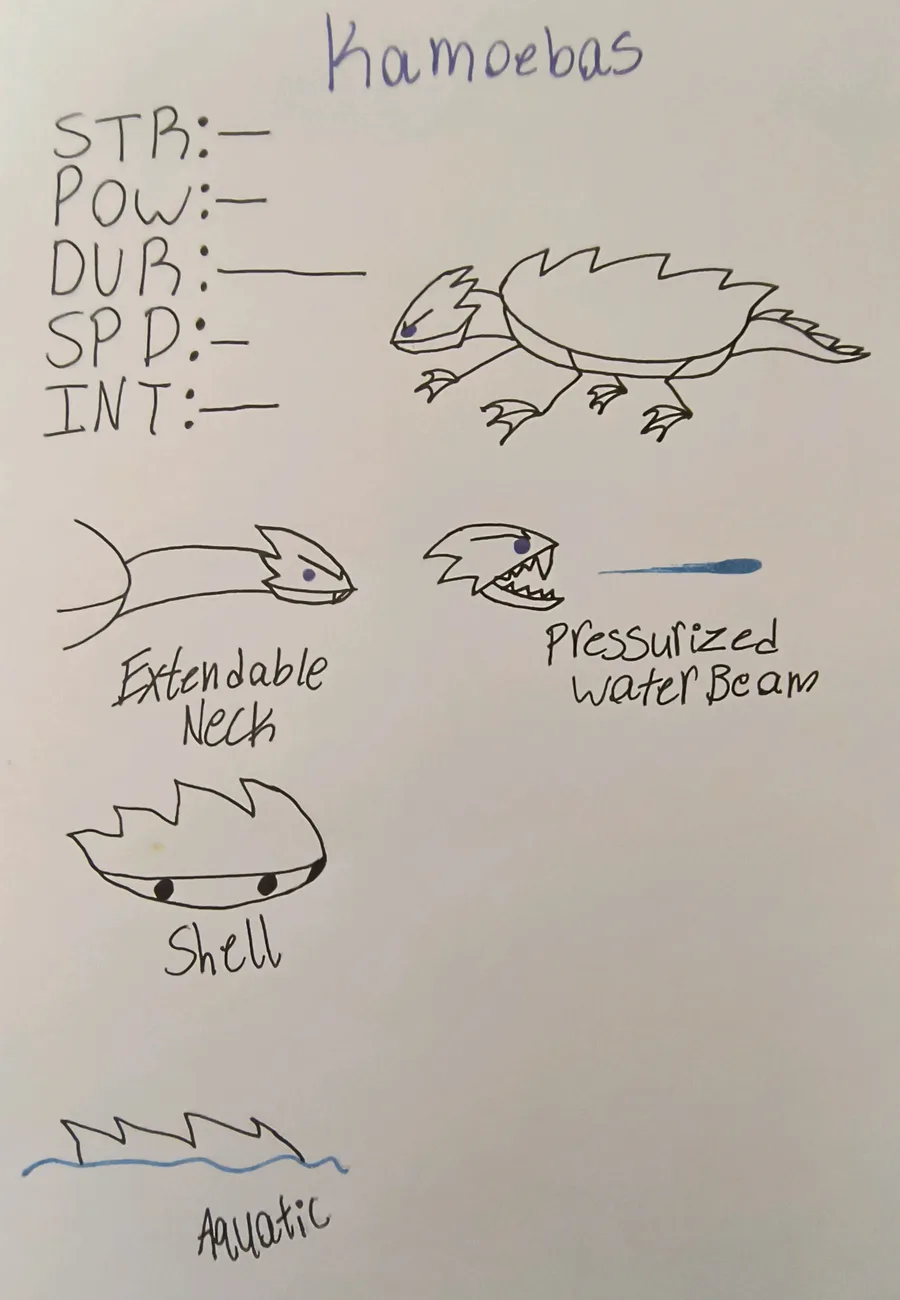 Kamoebas
STR:—
POW:—
DUR:—
SPD:—
INT:—
Extendable
Neck
Pressurized
Water Beam
Shell
Aquatic